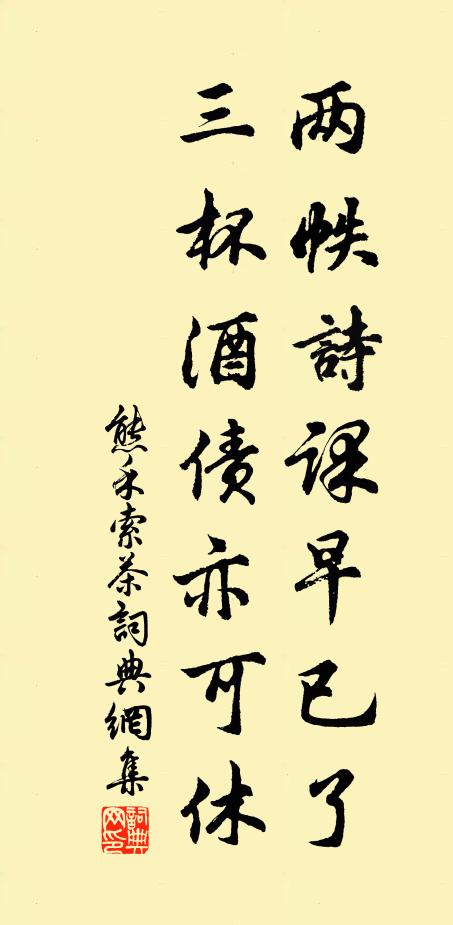 两帙詩課早已了
三杯酒债亦可休
熊禾索茶詞典網集
詞典网印